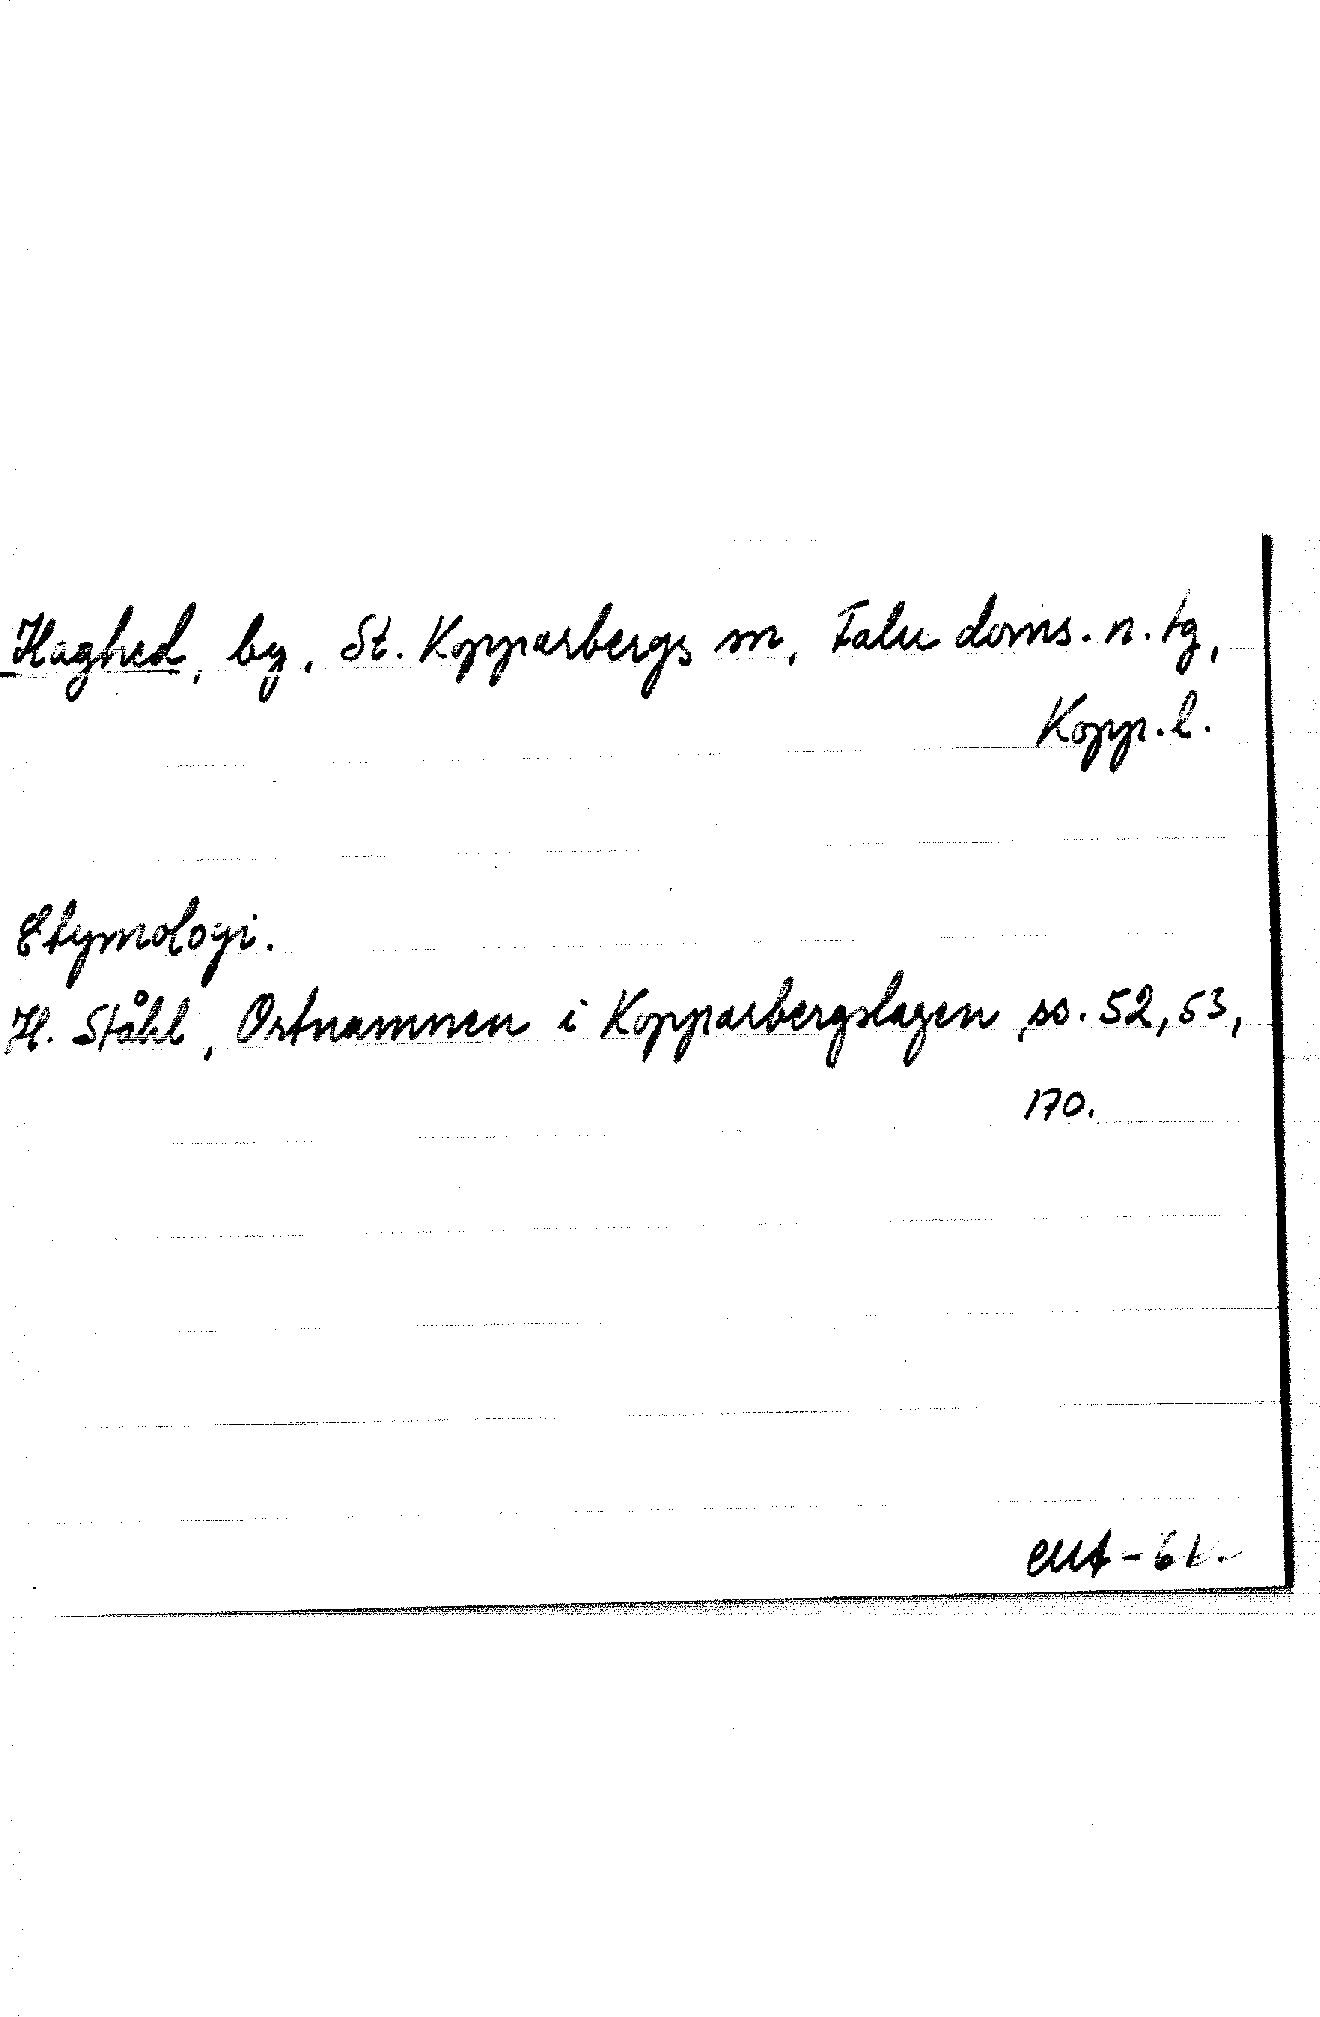 Haghed, by, St. Kopparbergs sn, Falu doms. n. tg,
Kopp. l.
Etymologi.
H. Ståhl, Ortnamnen i Kopparbergslagen ss. 52, 53,
170.